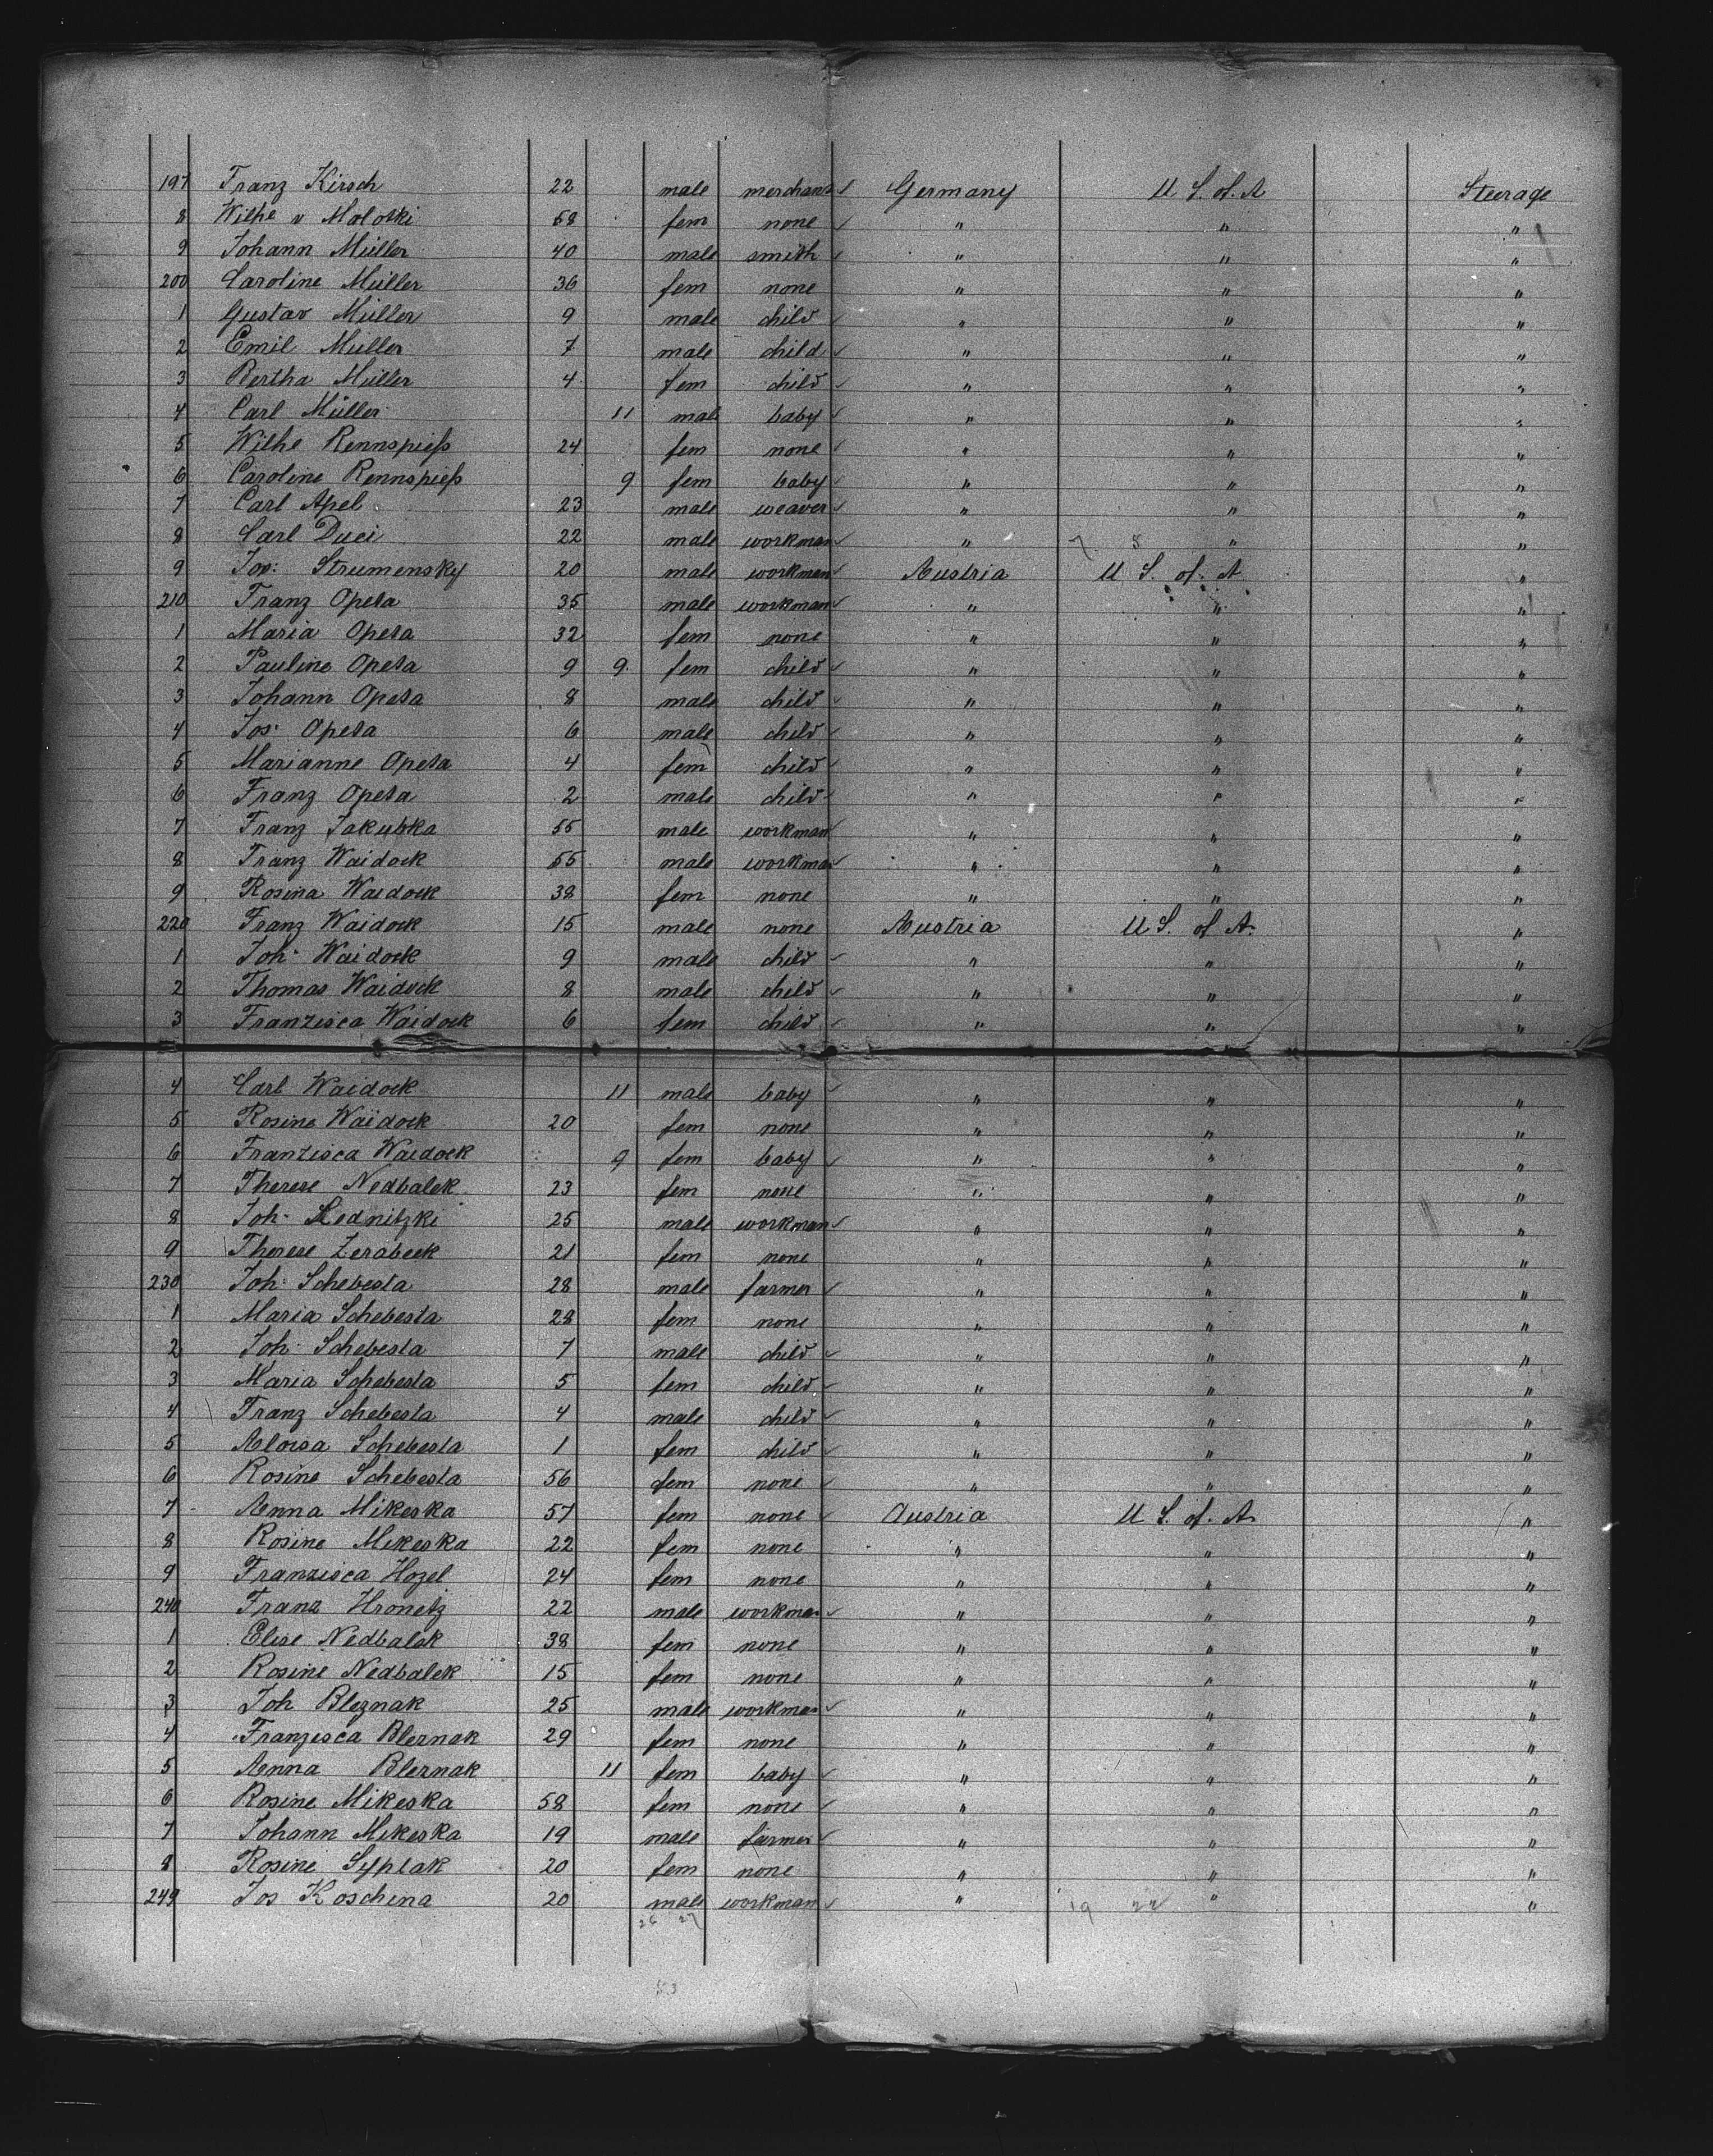 197 Franz Kirsch 22 male merchant Germany U S. of. A Steerage
8 Wilhe v Molotki 58 fem none " " "
9 Johann Müller 40 male smith " " "
200 Caroline Müller 36 fem none " " "
1 Gustav Müller 9 male child " " "
2 Emil Müller 7 male child " " "
3 Bertha Müller 4 fem child " " "
4 Carl Müller 11 male baby " " "
5 Wilhe Rennspieß 24 fem none " " "
6 Caroline Rennspieß 9 fem baby " " "
7 Carl Apel 23 male weaver " " "
8 Carl Duci 22 male workman " 7 8 " "
9 Jos: Strumensky 20 male workman Austria U S. of. A "
210 Franz Opela 35 male workman " " "
1 Maria Opela 32 fem none " " "
2 Pauline Opela 9 9. fem child " " "
3 Johann Opela 8 male child " " "
4 Jos: Opela 6 male child " " "
5 Marianne Opela 4 fem child " " "
6 Franz Opela 2 male child " " "
7 Franz Jakubka 55 male workman " " "
8 Franz Waidock 55 male workman " " "
9 Rosina Waidock 38 fem none " " "
220 Franz Waidock 15 male none Austria U S. of A. "
1 Joh: Waidock 9 male child " " "
2 Thomas Waidock 8 male child " " "
3 Franzisca Waidock 6 fem child " " "
4 Carl Waidock 11 male baby " " "
5 Rosine Waidock 20 fem none " " "
6 Franzisca Waidock 9 fem baby " " "
7 Therese Nedbalek 23 fem none " " "
8 Joh: Lednitzki 25 male workman " " "
9 Therese Zerabeck 21 fem none " " "
230 Joh: Schebesta 28 male farmer " " "
1 Maria Schebesta 28 fem none " " "
2 Joh: Schebesta 7 male child " " "
3 Maria Schebesta 5 fem child " " "
4 Franz Schebesta 4 male child " " "
5 Aloisa Schebesta 1 fem child " " "
6 Rosine Schebesta 56 fem none " " "
7 Anna Mikeska 57 fem none Austria U S. of. A "
8 Rosine Mikeska 22 fem none " " "
9 Franzisca Hozel 24 fem none " " "
240 Franz Hronetz 22 male workman " " "
1 Elise Nedbalek 38 fem none " " "
2 Rosine Nedbalek 15 fem none " " "
3 Joh Bleznak 25 male workman " " "
4 Franzisca Bleznak 29 fem none " " "
5 Anna Bleznak 11 fem baby " " "
6 Rosine Mikeska 58 fem none " " "
7 Johann Mikeska 19 male farmer " " "
8 Rosine Syptak 20 fem none " " "
249 Jos Koschena 20 male workman " 19 22 " "
26 27
53